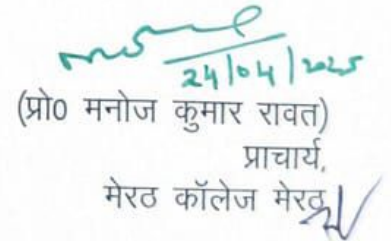 24/04/2025
(प्रो0 मनोज कुमार रावत)
प्राचार्य,
मेरठ कॉलेज मेरठ